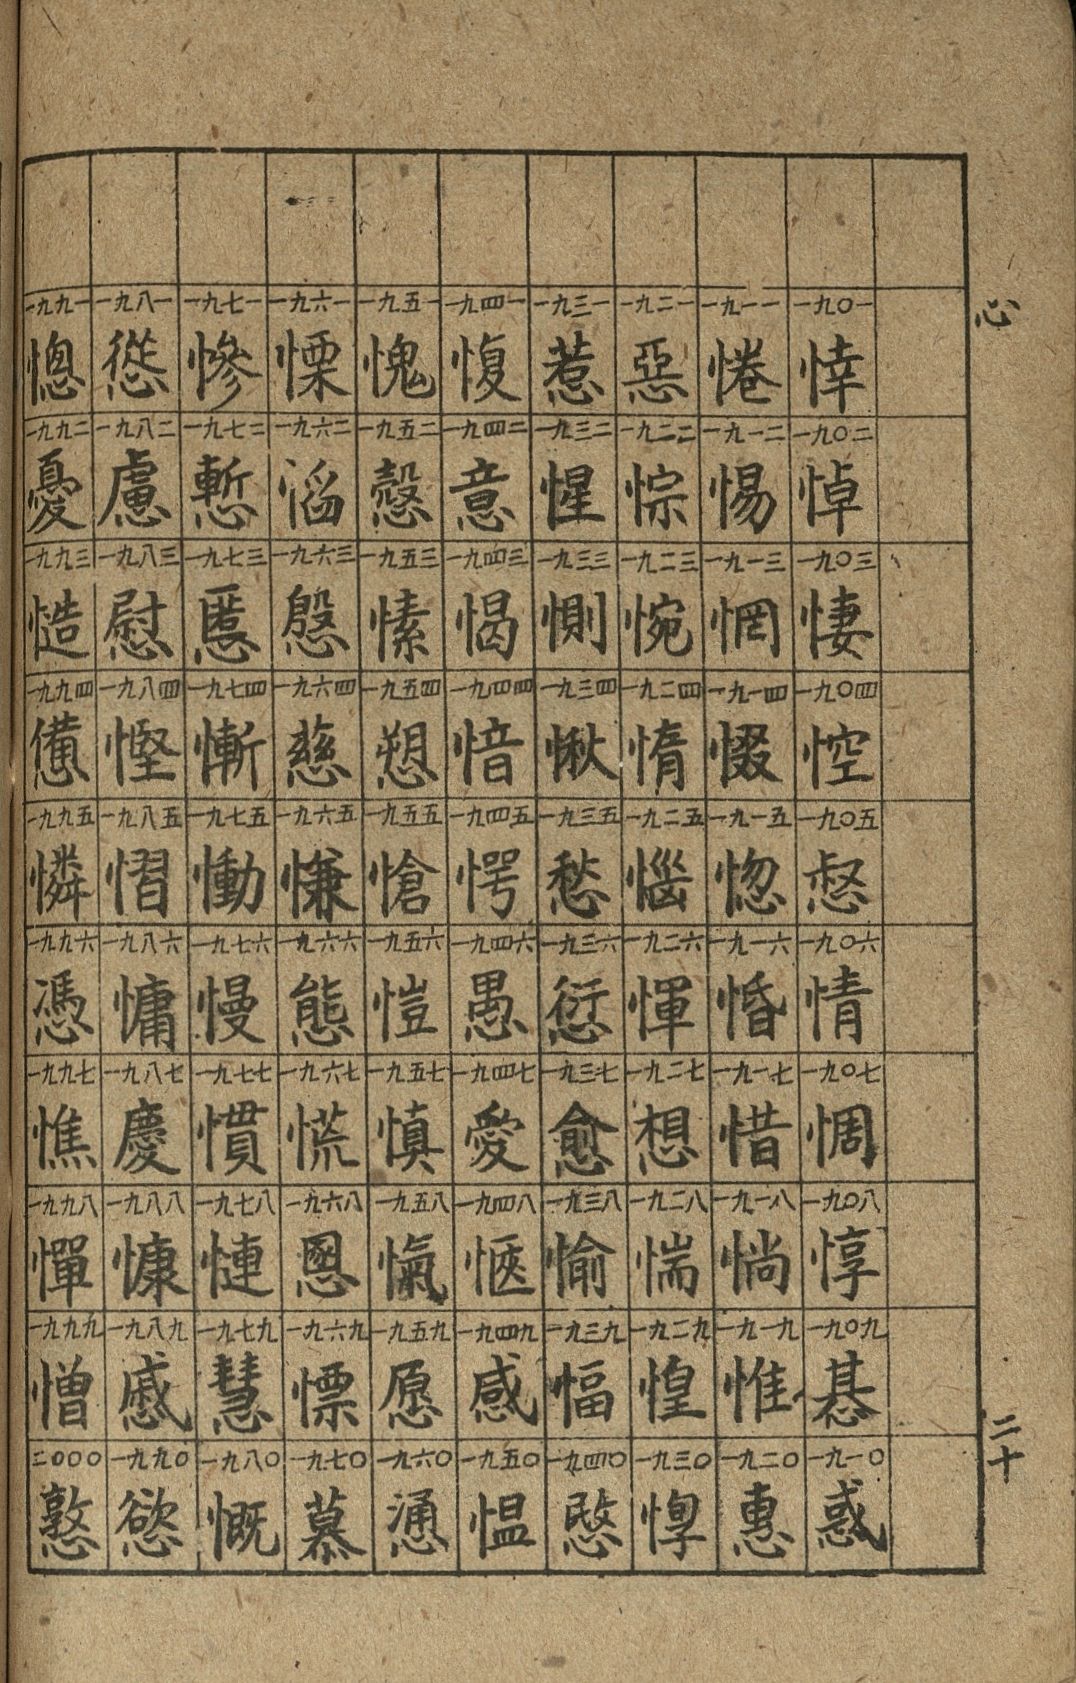 心
一九〇一 悻
一九〇二 悼
一九〇三 悽
一九〇四 悾
一九〇五 惄
一九〇六 情
一九〇七 惆
一九〇八 惇
一九〇九 惎
一九一〇 惑
一九一一 惓
一九一二 惕
一九一三 惘
一九一四 惙
一九一五 惚
一九一六 惛
一九一七 惜
一九一八 惝
一九一九 惟
一九二〇 惠
一九二一 惡
一九二二 悰
一九二三 惋
一九二四 惰
一九二五 惱
一九二六 惲
一九二七 想
一九二八 惴
一九二九 惶
一九三〇 惸
一九三一 惹
一九三二 惺
一九三三 惻
一九三四 愀
一九三五 愁
一九三六 愆
一九三七 愈
一九三八 愉
一九三九 愊
一九四〇 愍
一九四一 愎
一九四二 意
一九四三 愒
一九四四 愔
一九四五 愕
一九四六 愚
一九四七 愛
一九四八 愜
一九四九 感
一九五〇 愠
一九五一 愧
一九五二 愨
一九五三 愫
一九五四 愬
一九五五 愴
一九五六 愷
一九五七 慎
一九五八 愾
一九五九 愿
一九六〇 慂
一九六一 慄
一九六二 慆
一九六三 慇
一九六四 慈
一九六五 慊
一九六六 態
一九六七 慌
一九六八 慁
一九六九 慓
一九七〇 慕
一九七一 慘
一九七二 慙
一九七三 慝
一九七四 慚
一九七五 慟
一九七六 慢
一九七七 慣
一九七八 慩
一九七九 慧
一九八〇 慨
一九八一 慫
一九八二 慮
一九八三 慰
一九八四 慳
一九八五 慴
一九八六 慵
一九八七 慶
一九八八 慷
一九八九 慼
一九九〇 慾
一九九一 憁
一九九二 憂
一九九三 慥
一九九四 憊
一九九五 憐
一九九六 憑
一九九七 憔
一九九八 憚
一九九九 憎
二〇〇〇 憝
二十